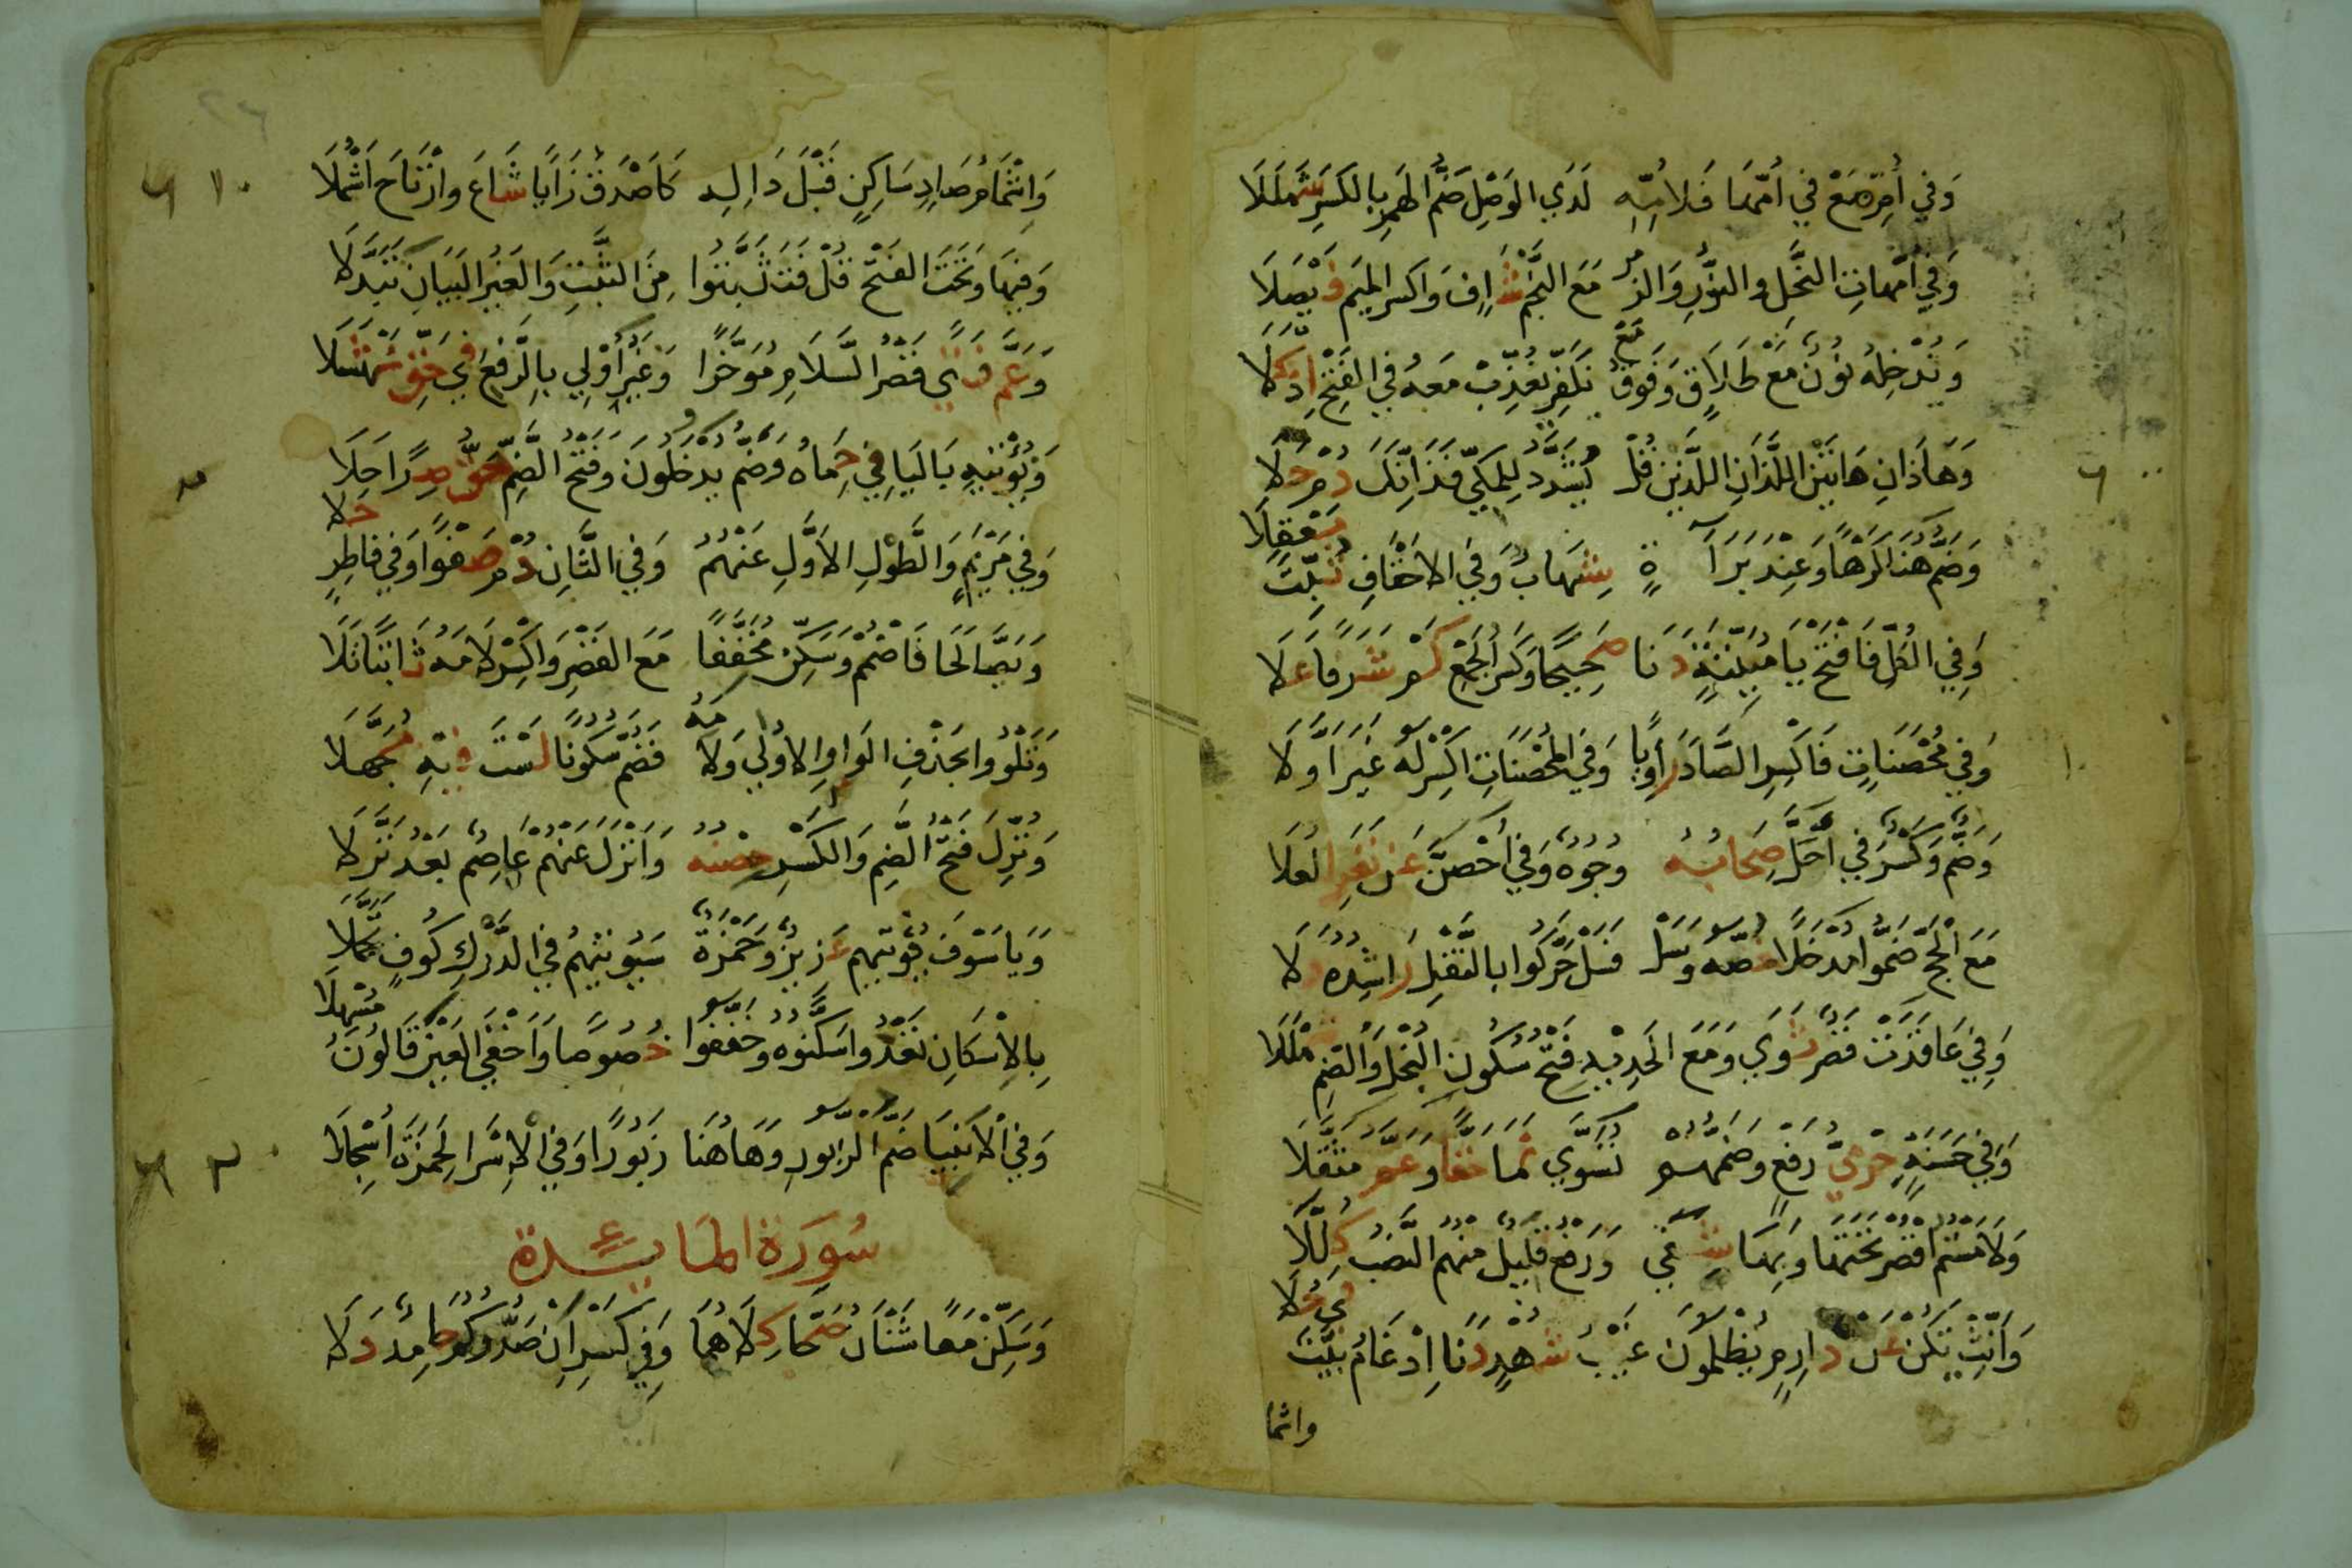 وَفي أُمِّ مَعْ في أُمِّهَا فَلأُمِّهِ لَدَي الوَصْلِ ضَمُّ الهَمزِ بِالكَسْرِ شَمْلَلَا
وَفي أُمَّهاتِ النَّحْلِ والنُّورِ وَالزُّمَرْ مَعَ النَّجْمِ شَافٍ وَاكسِرِ المِيمَ فَيْصَلَا
وَنُدْخِلْهُ نُونٌ مَعْ طَلاقٍ وَفَوقُ مَعْ نُكَفِّرْ نُعَذِّبْ مَعَهُ في الفَتْحِ إِذْ كَلَا
وَهَاذَانِ هَاتَيْنِ اللَّذَانِ اللَّذَيْنِ قُلْ يُشَدَّدُ لِلمَكِّي فَذَانِكَ دُمْ حُلَا
وَضَمَّ هُنَا كَرْهًا وَعِنْدَ بَرَآةٍ شِهَابٌ وَفي الاحْقَافِ ثُبِّتَ مَعْقِلَا
وَفِي الكُلِّ فَافْتَحْ يَا مُبَيِّنَةٍ دَنَا صَحِيحًا وَكَسْرُ الجَمْعِ كَمْ شَرَفًا عَلَا
وَفي مُحْصَنَاتٍ فَاكْسِرِ الصَّادَ رَاوِيًا وَفي المُحْصَنَاتِ اكْسِرْ لَهُ غَيْرَ أَوَّلَا
وَضَمٌّ وَكَسْرٌ في أَحَلَّ صِحَابُهُ وُجُوهٌ وَفي أَحْصَنَّ عَنْ نَفَرِ العُلَا
مَعَ الْحَجِّ ضَمُّوا مَدْخَلًا خَصَّهُ وَسَلْ فَسَلْ حَرَّكُوا بالنَّقْلِ رَاشِدُهُ دَلَا
وَفي عَاقَدَتْ قَصْرٌ ثَوَي وَمَعَ الحَدِيدِ فَتْحُ سُكُونِ البُخْلِ وَالضَّمِّ شَمْلَلَا
وَفي حَسَنَةٍ حِرْمِيُّ رَفْعٍ وَضَمُّهُمْ تُسَوَّي نَمَا حَقًّا وَعَمَّ مُثَقَّلَا
وَلَامَسْتُمُ اقْصُرْ تَحْتَهَا وَبِهَا شَفَي وَرَفْعُ قَلِيلٌ مِنْهُمُ النَّصْبَ كُلِّلَا
وَأَنِّثْ تَكُنْ عَنْ دَارِمٍ يُظْلَمُونَ غَيْبُ شُهْدٍ دَنَا اِدْغَامُ بَيَّتَ في حُلَا
واشما
وَاشْمَامُ صَادٍ سَاكِنٍ قَبْلَ دَالِهِ كَأَصْدَقُ زَايًا شَاعَ وارْتَاحَ اَشْمُلَا
وَفِيهَا وَتَحْتَ الفَتْحِ قُلْ فَتَثَبَّتُوا مِنَ الثَّبْتِ وَالغَيْرُ البَيَانَ تَبَدَّلَا
وَعَمَّ فَتًى قَصْرُ السَّلَامِ مُؤَخَّرًا وَغَيْرَ أُوْلِي بِالرَّفْعِ في حَقِّ نَهْشَلَا
وَيُؤْتِيهِ بِاليَا فِي حِمَاهُ وَضَمُّ يَدْخُلُونَ وَفَتْحُ الضَّمِّ حَقٌّ صِرًا حَلَا
وَفي مَرْيَمٍ وَالطَّوْلِ الاَوَّلِ عَنْهُمُ وَفي الثَّانِ دُمْ صَفْوًا وَفي فَاطِرٍ حَلَا
وَيَصَّالَحَا فَاضْمُمْ وَسَكِّنْ مُخَفِّفًا مَعَ القَصْرِ وَاكْسِرْ لَامَهُ ثَابِتًا تَلَا
وَتَلْوُوا بِحَذْفِ الوَاوِ الاولي وَلَامَهُ فَضُمَّ سُكُونًا لَسْتَ فِيهِ مُجَهَّلَا
وَنُزِّلَ فَتْحُ الضَّمِّ وَالكَسْرِ حِصْنُهُ وَاَنْزَلَ عَنْهُمْ عَاصِمٌ بَعْدُ نَزَّلَا
وَيَا سَوْفَ نُؤْتِيهِمْ عَزِيزٌ وَحَمْزَةٌ سَيُوْتِيهِمُ في الدَّرْكِ كُوفٍ تَحَمَّلَا
بِالاِسْكَانِ تَعْدُوا سَكِّنُوهُ وَخَفِّفُوا خُصُوصًا وَاَخْفَي العَيْنَ قَالُونُ مُسْهِلَا
وَفي الانْبِيَا ضَمُّ الزَّبُورِ وَهَاهُنَا زَبُورًا وَفي الاِسْرَا لِحَمْزَةَ اُسْجِلَا
سُورَة المَائِدة
وَسَكِّنْ مَعًا شَنْآنُ صَحَّا كِلَاهُمَا وَفي كَسْرِ اَنْ صَدُّوكُمُ حَامِدٌ دَلَا